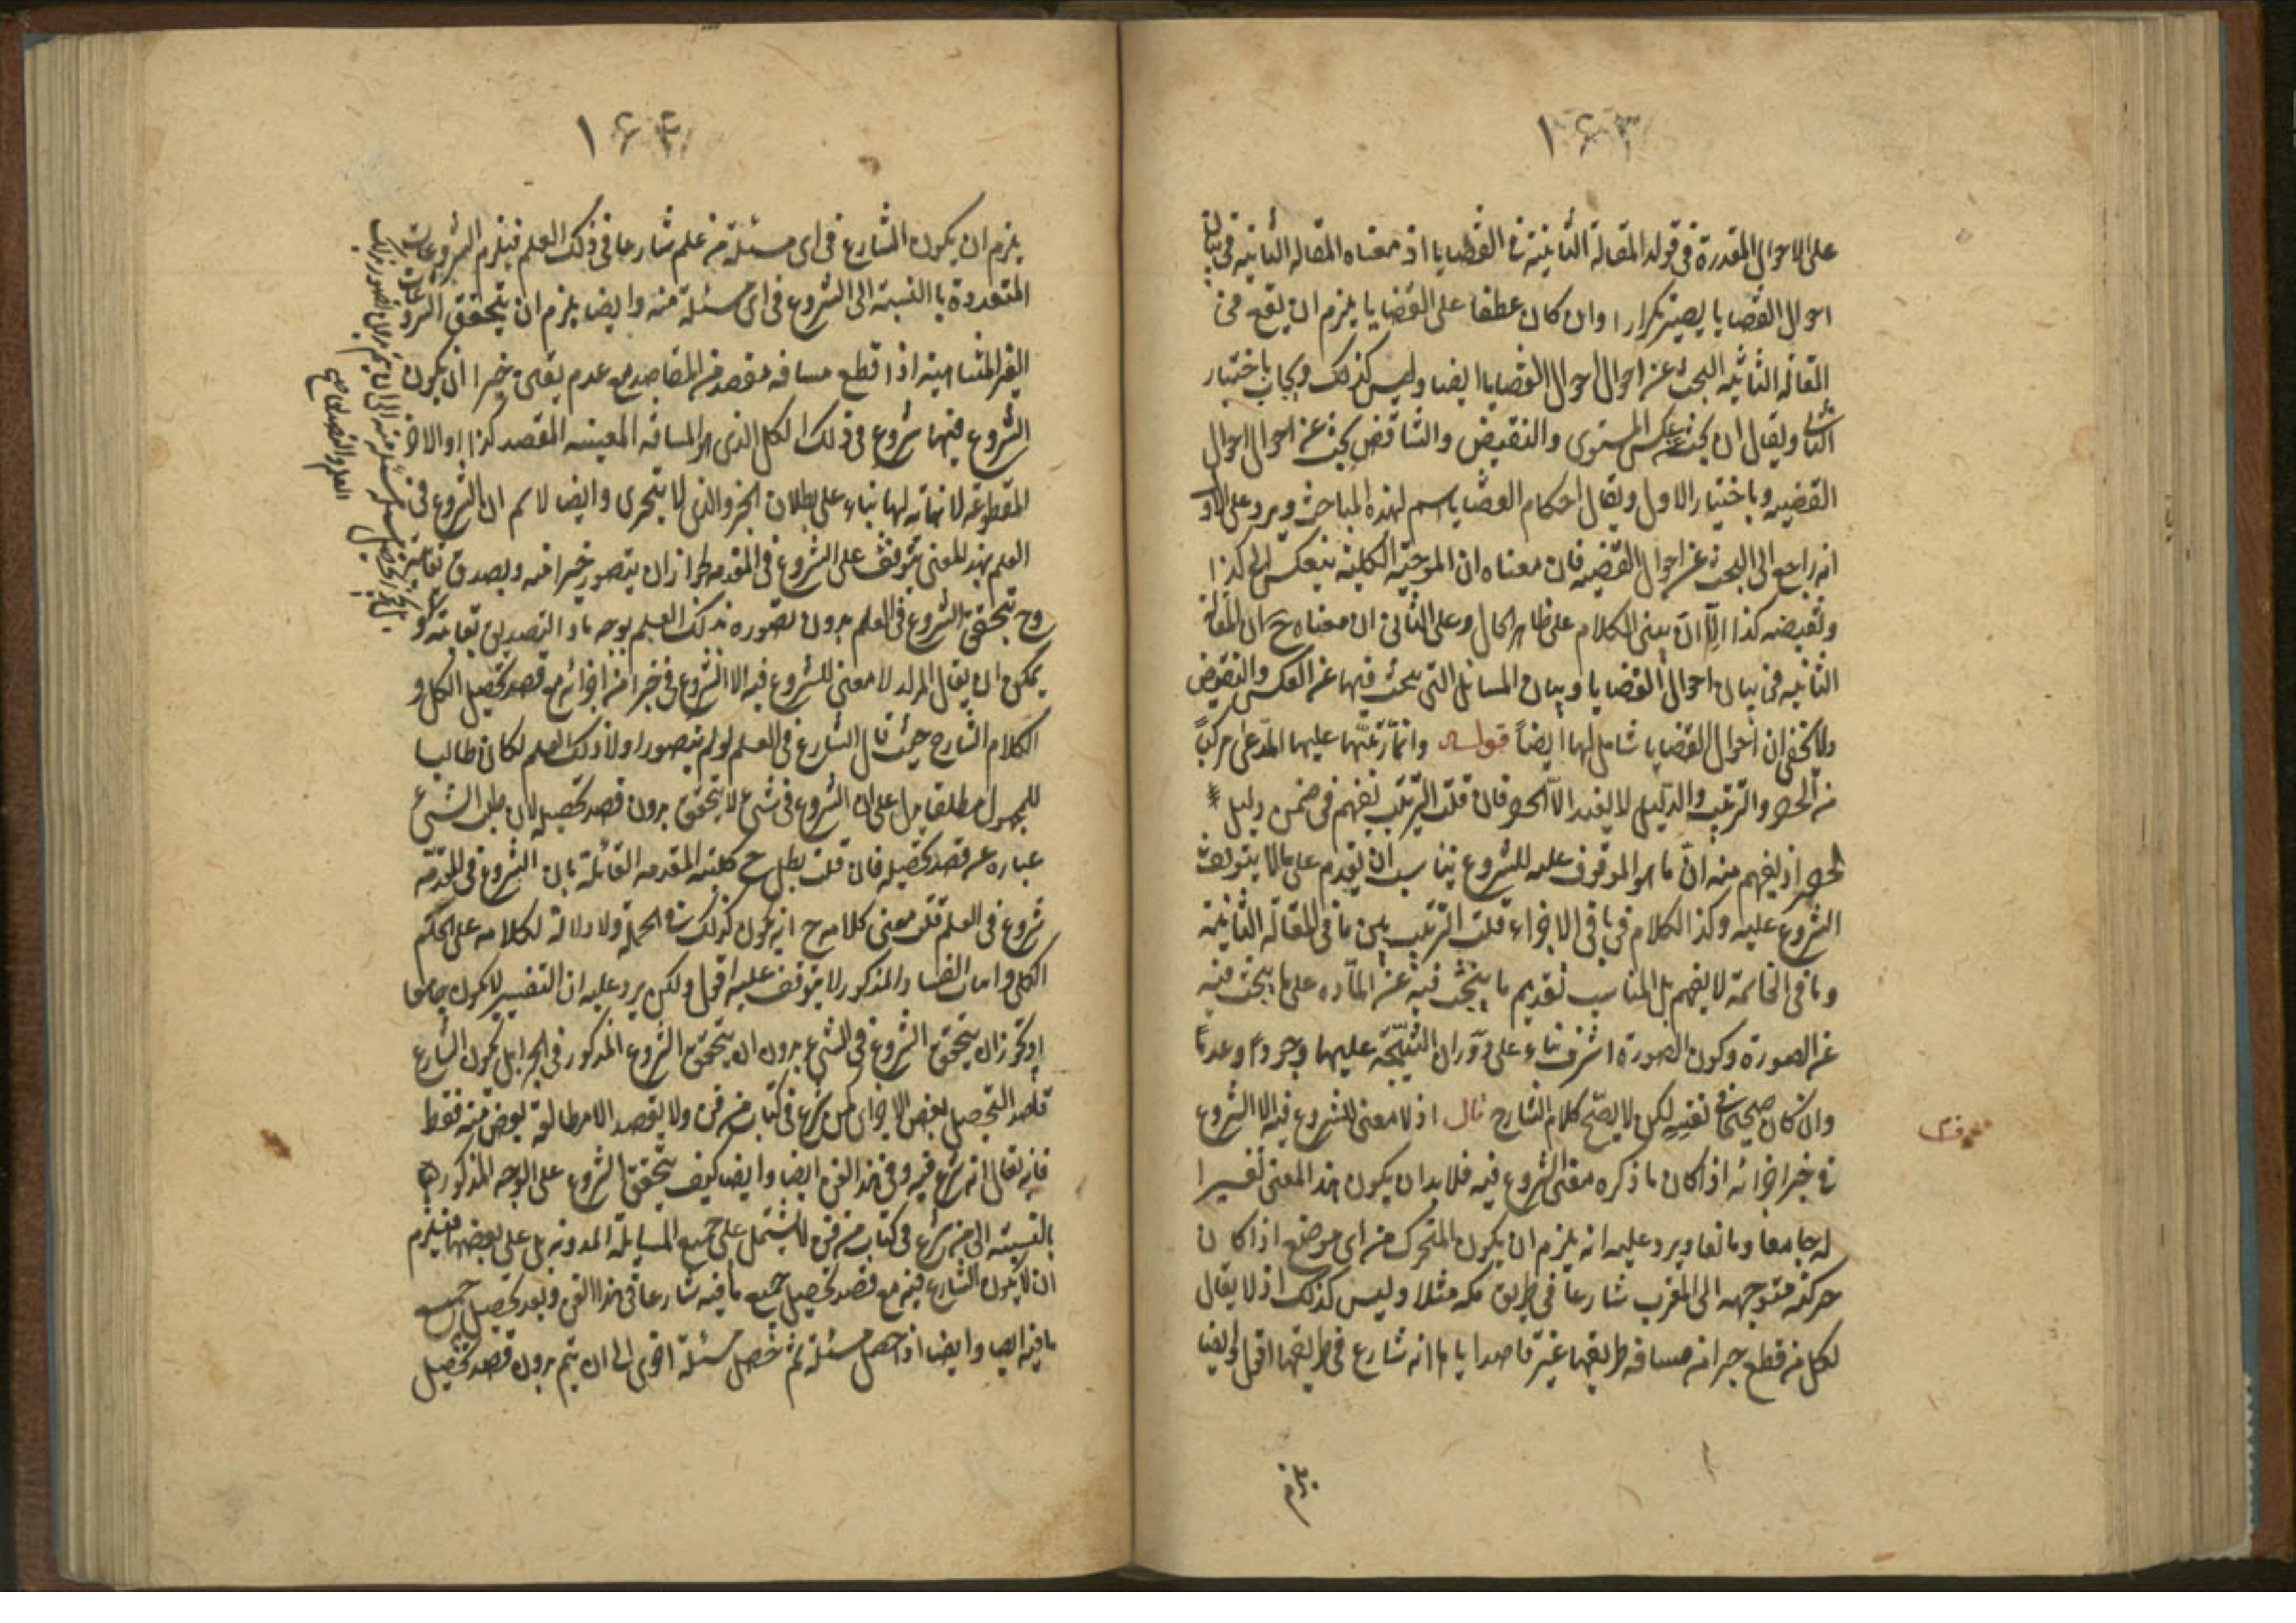 ١٦٣
على الاحوال المقدرة فى قوله المقالة الثانية فى القضايا اذ معناه المقاله الثانيه فى بيان
احوال القضايا يصير تكرارا وان كان عطفا على القضايا يلزم ان يقع فى
المقاله الثانيه البحث عن احوال احوال القضايا ايضا وليس كذلك ويجاب باختيار
الثانى ويقال ان بحث عكس المستوى والنقيض والتناقض بحث عن احوال احوال
القضيه وباختيار الاول ويقال احكام القضايا اسم لهذه المباحث ويرد على الاول
انه راجع الى البحث عن احوال القضيه فان معناه ان الموجبة الكلية ينعكس الى كذا
ونقيضه كذا الا ان يبنى الكلام على ظاهر الحال وعلى الثانى ان معناه ح ان المقالة
الثانيه فى بيان احوال القضايا وبيان المسائل التى يبحث فيها عن العكس والنقيض
ولا يخفى ان احوال القضايا شامل لها ايضاً قوله وانما رتبها عليها المدعى مركباً
من الحصر والترتيب والدليل لا يفيد الا الحصر فان قلت الترتيب يفهم فى ضمن دليل
الحصر اذ يفهم منه ان ما هو الموقوف عليه للشروع يناسب ان يقدم على ما لا يتوقف
الشروع عليه وكذا الكلام فى باقى الاجزاء قلت الترتيب بين ما فى المقالة الثانية
وما فى الخاتمة لا يفهم بل المناسب تقديم ما يبحث فيه عن المآده على ما يبحث فيه
عن الصورة وكون الصورة اشرف بناء على دوران النتيجة عليها وجوداً وعدماً
وان كان صحيحا فى نفسه لكن لا يصح كلام الشارح قال اذ لا معنى للشروع فيه الا الشروع
فى جزء اجزائه اذا كان ما ذكره معنى الشروع فيه فلابد ان يكون هذا المعنى تفسيرا
له جامعا ومانعا ويرد عليه انه يلزم ان يكون المتحرك من اى موضع اذا كان
حركته متوجهه الى المغرب شارعا فى طريق مكه مثلا وليس كذلك اذ لا يقال
لكل من قطع جزء من مسافه طريقها غير قاصد اياها انه شارع فى طريقها اقول ايضا
يلزم
١٦٤
يلزم ان يكون الشارع فى اى مسئلة من علم شارعا فى ذلك العلم فيلزم الشروعات
المتعددة بالنسبة الى الشروع فى اى مسئلة منه وايضا يلزم ان يتحقق الشروعات
الغير المتناهية اذا قطع مسافه مقصد من المقاصد مع عدم تعين جزء اذ يكون
الشروع فيها شروع فى ذلك الكل الذى هو المسافه المعينه المقصد كذا او الاجزاء
المقطوعة لا نهاية لها بناء على بطلان الجزء الذى لا يتجزى وايضا لا نسلم ان الشروع فى
العلم بهذا المعنى يتوقف على الشروع فى المقدمه لجواز ان يتصور جزء منه ويصدق بغايته
وح يتحقق الشروع فى العلم بدون تصوره ذلك العلم بوجه ما والتصديق بغايته و
يمكن ان يقال المراد لا معنى للشروع فيه الا الشروع فى جزء من اجزائه مع قصد تحصيل الكل و
الكلام الشارح حيث قال الشارع فى العلم لو لم يتصور اولا ذلك العلم لكان طالبا
للمجهول مطلقا يدل على ان الشروع فى شئ لا يتحقق بدون قصد تحصيله لان طلب الشئ
عباره عن قصد تحصيله فان قلت بطل ح كلية المقدمه القائلة بان الشروع فى المقدمة
شروع فى العلم قلت معنى كلامه ح انه يكون كذلك فى الجملة ولا دلالة لكلامه على الحكم
الكلى واثبات الفساد المذكور لا يتوقف عليه اقول ولكن يرد عليه ان التفسير لا يكون جامعا
اذ يجوز ان يتحقق الشروع فى الشئ بدون ان يتحقق الشروع المذكور فى الجزء بل يكون الشارع
قاصد التحصيل بعض الاجزاء كمن شرع فى كتاب من فن ولا يقصد الا مطالعة بعض منه فقط
فانه يقال انه شرع فيه وفى هذا الفن ايضا وايضا كيف يتحقق الشروع على الوجه المذكور
بالنسبة الى من شرع فى كتاب من فن لا يشتمل على جميع المسايلة المدونه بل على بعضها فيلزم
ان لا يكون الشارع فيه مع قصد تحصيل جميع ما فيه شارعا فى هذا الفن وبعد تحصيل جميع
ما فيه ايضا وايضا اذا حصل مسئلة ثم حصل مسئلة اخرى الى ان يتم بدون قصد تحصيل
العلم والتصديق بغايته